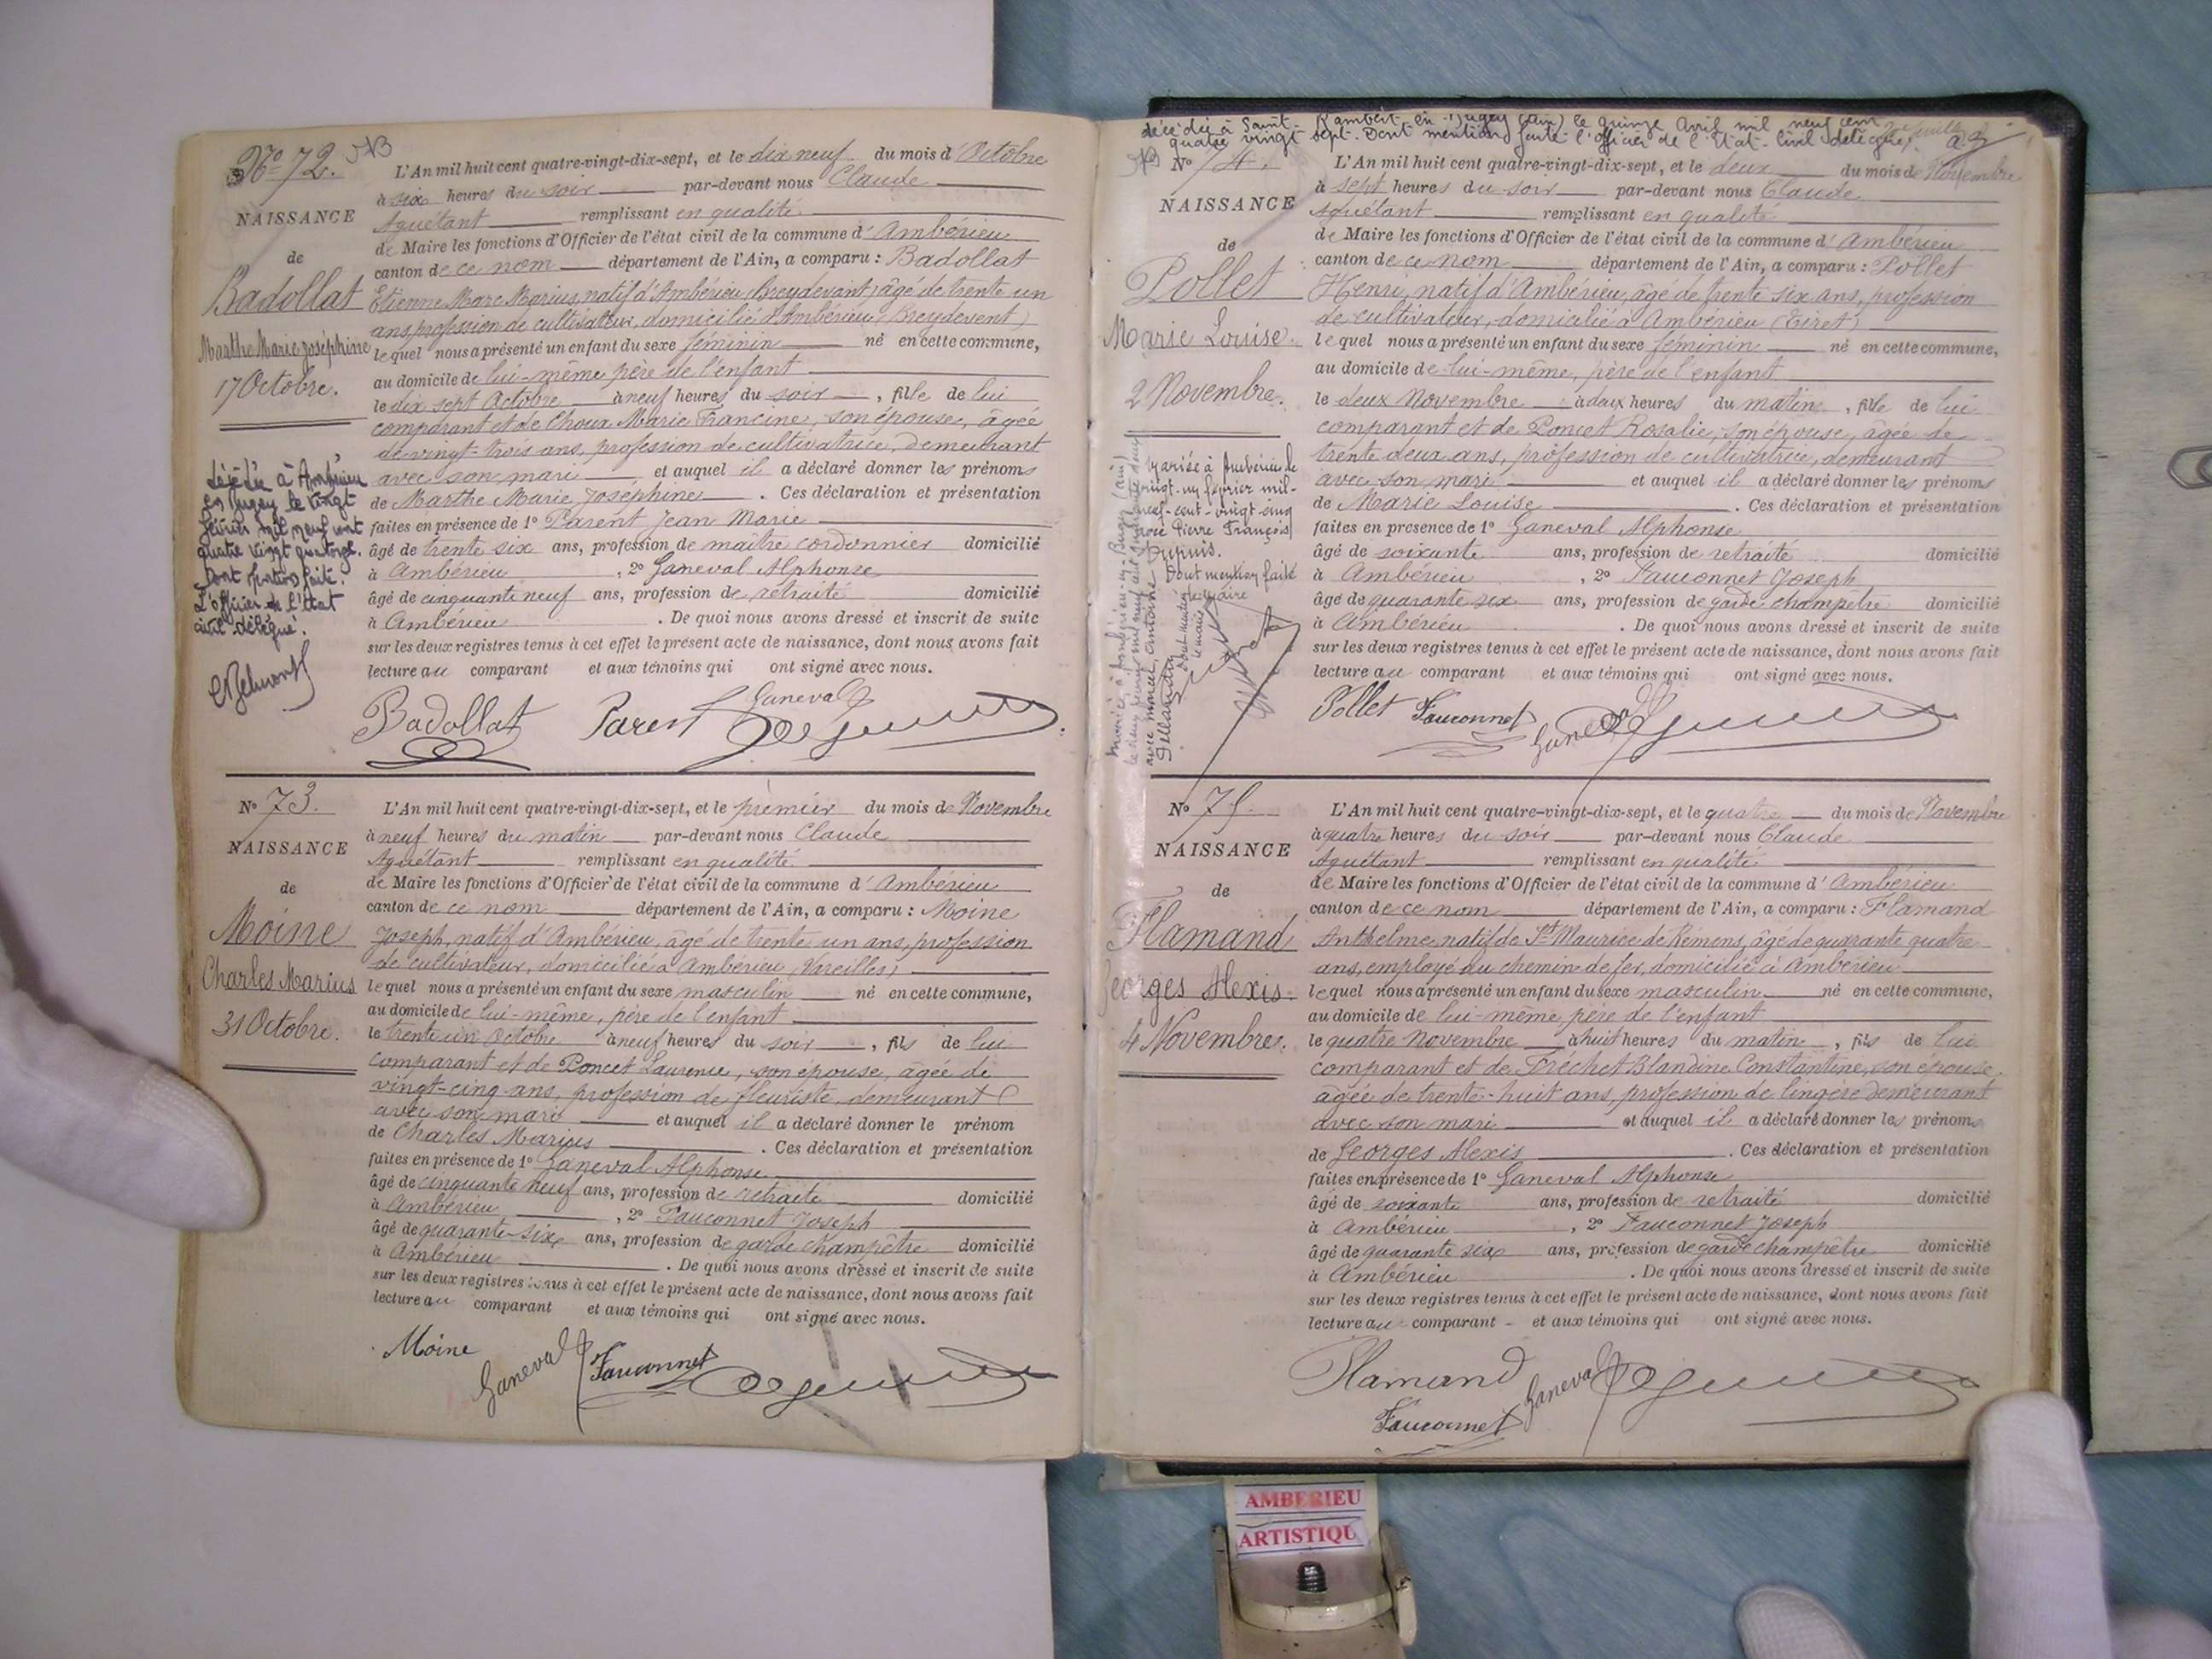 No 72. NB
NAISSANCE
de
Badollat
Marthe Marie Joséphine
17 Octobre.
décédée à Ambérieu
en Bugey le vingt
février mil neuf cent
quatre vingt quatorze.
Dont mention faite.
L'officier de l'état
civil délégué.
L'An mil huit cent quatre-vingt-dix-sept, et le dix neuf du mois d'Octobre
à six heures du soir par-devant nous Claude
Aguétant remplissant en qualité
de Maire les fonctions d'Officier de l'état civil de la commune d'Ambérieu
canton de ce nom département de l'Ain, a comparu : Badollat
Etienne Marc Marius, natif d'Ambérieu (Breydevant) âgé de trente un
ans, profession de cultivateur, domicilié à Ambérieu (Breydevent)
lequel nous a présenté un enfant du sexe féminin né en cette commune,
au domicile de lui-même père de l'enfant
le dix sept Octobre à neuf heures du soir, fille de lui
comparant et de Choux Marie Francine, son épouse, âgée
de vingt-trois ans, profession de cultivatrice, demeurant
avec son mari et auquel il a déclaré donner les prénoms
de Marthe Marie Joséphine. Ces déclaration et présentation
faites en présence de 1º Parent Jean Marie
âgé de trente six ans, profession de maître cordonnier domicilié
à Ambérieu, 2º Ganeval Alphonse
âgé de cinquante neuf ans, profession de retraité domicilié
à Ambérieu. De quoi nous avons dressé et inscrit de suite
sur les deux registres tenus à cet effet le présent acte de naissance, dont nous avons fait
lecture au comparant et aux témoins qui ont signé avec nous.
Badollat Parent Ganeval
No 73.
NAISSANCE
de
Moine
Charles Marius
31 Octobre.
L'An mil huit cent quatre-vingt-dix-sept, et le premier du mois de Novembre
à neuf heures du matin par-devant nous Claude
Aguétant remplissant en qualité
de Maire les fonctions d'Officier de l'état civil de la commune d'Ambérieu
canton de ce nom département de l'Ain, a comparu : Moine
Joseph, natif d'Ambérieu, âgé de trente un ans, profession
de cultivateur, domicilié à Ambérieu (Vareilles)
lequel nous a présenté un enfant du sexe masculin né en cette commune,
au domicile de lui-même, père de l'enfant
le trente un Octobre à neuf heures du soir, fils de lui
comparant et de Poncet Laurence, son épouse, âgée de
vingt-cinq ans, profession de fleuriste, demeurant
avec son mari et auquel il a déclaré donner le prénom
de Charles Marius. Ces déclaration et présentation
faites en présence de 1º Ganeval Alphonse
âgé de cinquante neuf ans, profession de retraité domicilié
à Ambérieu, 2º Fauconnet Joseph
âgé de quarante-six ans, profession de garde champêtre domicilié
à Ambérieu. De quoi nous avons dressé et inscrit de suite
sur les deux registres tenus à cet effet le présent acte de naissance, dont nous avons fait
lecture au comparant et aux témoins qui ont signé avec nous.
Moine Ganeval Fauconnet
décédée à Saint-Rambert-en-Bugey (Ain) le quinze Avril mil neuf cent
quatre vingt sept. Dont mention faite. l'officier de l'Etat-Civil délégué,
No 74.
NAISSANCE
de
Pollet
Marie Louise.
2 Novembre.
Mariée à Ambérieu le
vingt-un février mil-
neuf-cent-vingt-cinq
avec Pierre François
Dupuis.
Dont mention faite
le maire
L'An mil huit cent quatre-vingt-dix-sept, et le deux du mois de Novembre
à sept heures du soir par-devant nous Claude
Aguétant remplissant en qualité
de Maire les fonctions d'Officier de l'état civil de la commune d'Ambérieu
canton de ce nom département de l'Ain, a comparu : Pollet
Henri, natif d'Ambérieu, âgé de trente six ans, profession
de cultivateur, domicilié à Ambérieu (Tiret)
lequel nous a présenté un enfant du sexe féminin né en cette commune,
au domicile de lui-même, père de l'enfant
le deux Novembre à deux heures du matin, fille de lui
comparant et de Poncet Rosalie, son épouse, âgée de
trente deux ans, profession de cultivatrice, demeurant
avec son mari et auquel il a déclaré donner les prénoms
de Marie Louise. Ces déclaration et présentation
faites en présence de 1º Ganeval Alphonse
âgé de soixante ans, profession de retraité domicilié
à Ambérieu, 2º Fauconnet Joseph
âgé de quarante six ans, profession de garde champêtre domicilié
à Ambérieu. De quoi nous avons dressé et inscrit de suite
sur les deux registres tenus à cet effet le présent acte de naissance, dont nous avons fait
lecture au comparant et aux témoins qui ont signé avec nous.
Pollet Fauconnet Ganeval
No 75.
NAISSANCE
de
Flamand
Georges Alexis.
4 Novembre.
L'An mil huit cent quatre-vingt-dix-sept, et le quatre du mois de Novembre
à quatre heures du soir par-devant nous Claude
Aguétant remplissant en qualité
de Maire les fonctions d'Officier de l'état civil de la commune d'Ambérieu
canton de ce nom département de l'Ain, a comparu : Flamand
Anthelme, natif de St Maurice de Rémens, âgé de quarante quatre
ans, employé au chemin de fer, domicilié à Ambérieu
lequel nous a présenté un enfant du sexe masculin né en cette commune,
au domicile de lui-même père de l'enfant
le quatre Novembre à huit heures du matin, fils de lui
comparant et de Fréchet Blandine Constantine, son épouse
âgée de trente-huit ans, profession de lingère demeurant
avec son mari et auquel il a déclaré donner les prénoms
de Georges Alexis. Ces déclaration et présentation
faites en présence de 1º Ganeval Alphonse
âgé de soixante ans, profession de retraité domicilié
à Ambérieu, 2º Fauconnet Joseph
âgé de quarante six ans, profession de garde champêtre domicilié
à Ambérieu. De quoi nous avons dressé et inscrit de suite
sur les deux registres tenus à cet effet le présent acte de naissance, dont nous avons fait
lecture au comparant et aux témoins qui ont signé avec nous.
Flamand Ganeval
Fauconnet
AMBERIEU
ARTISTIQU